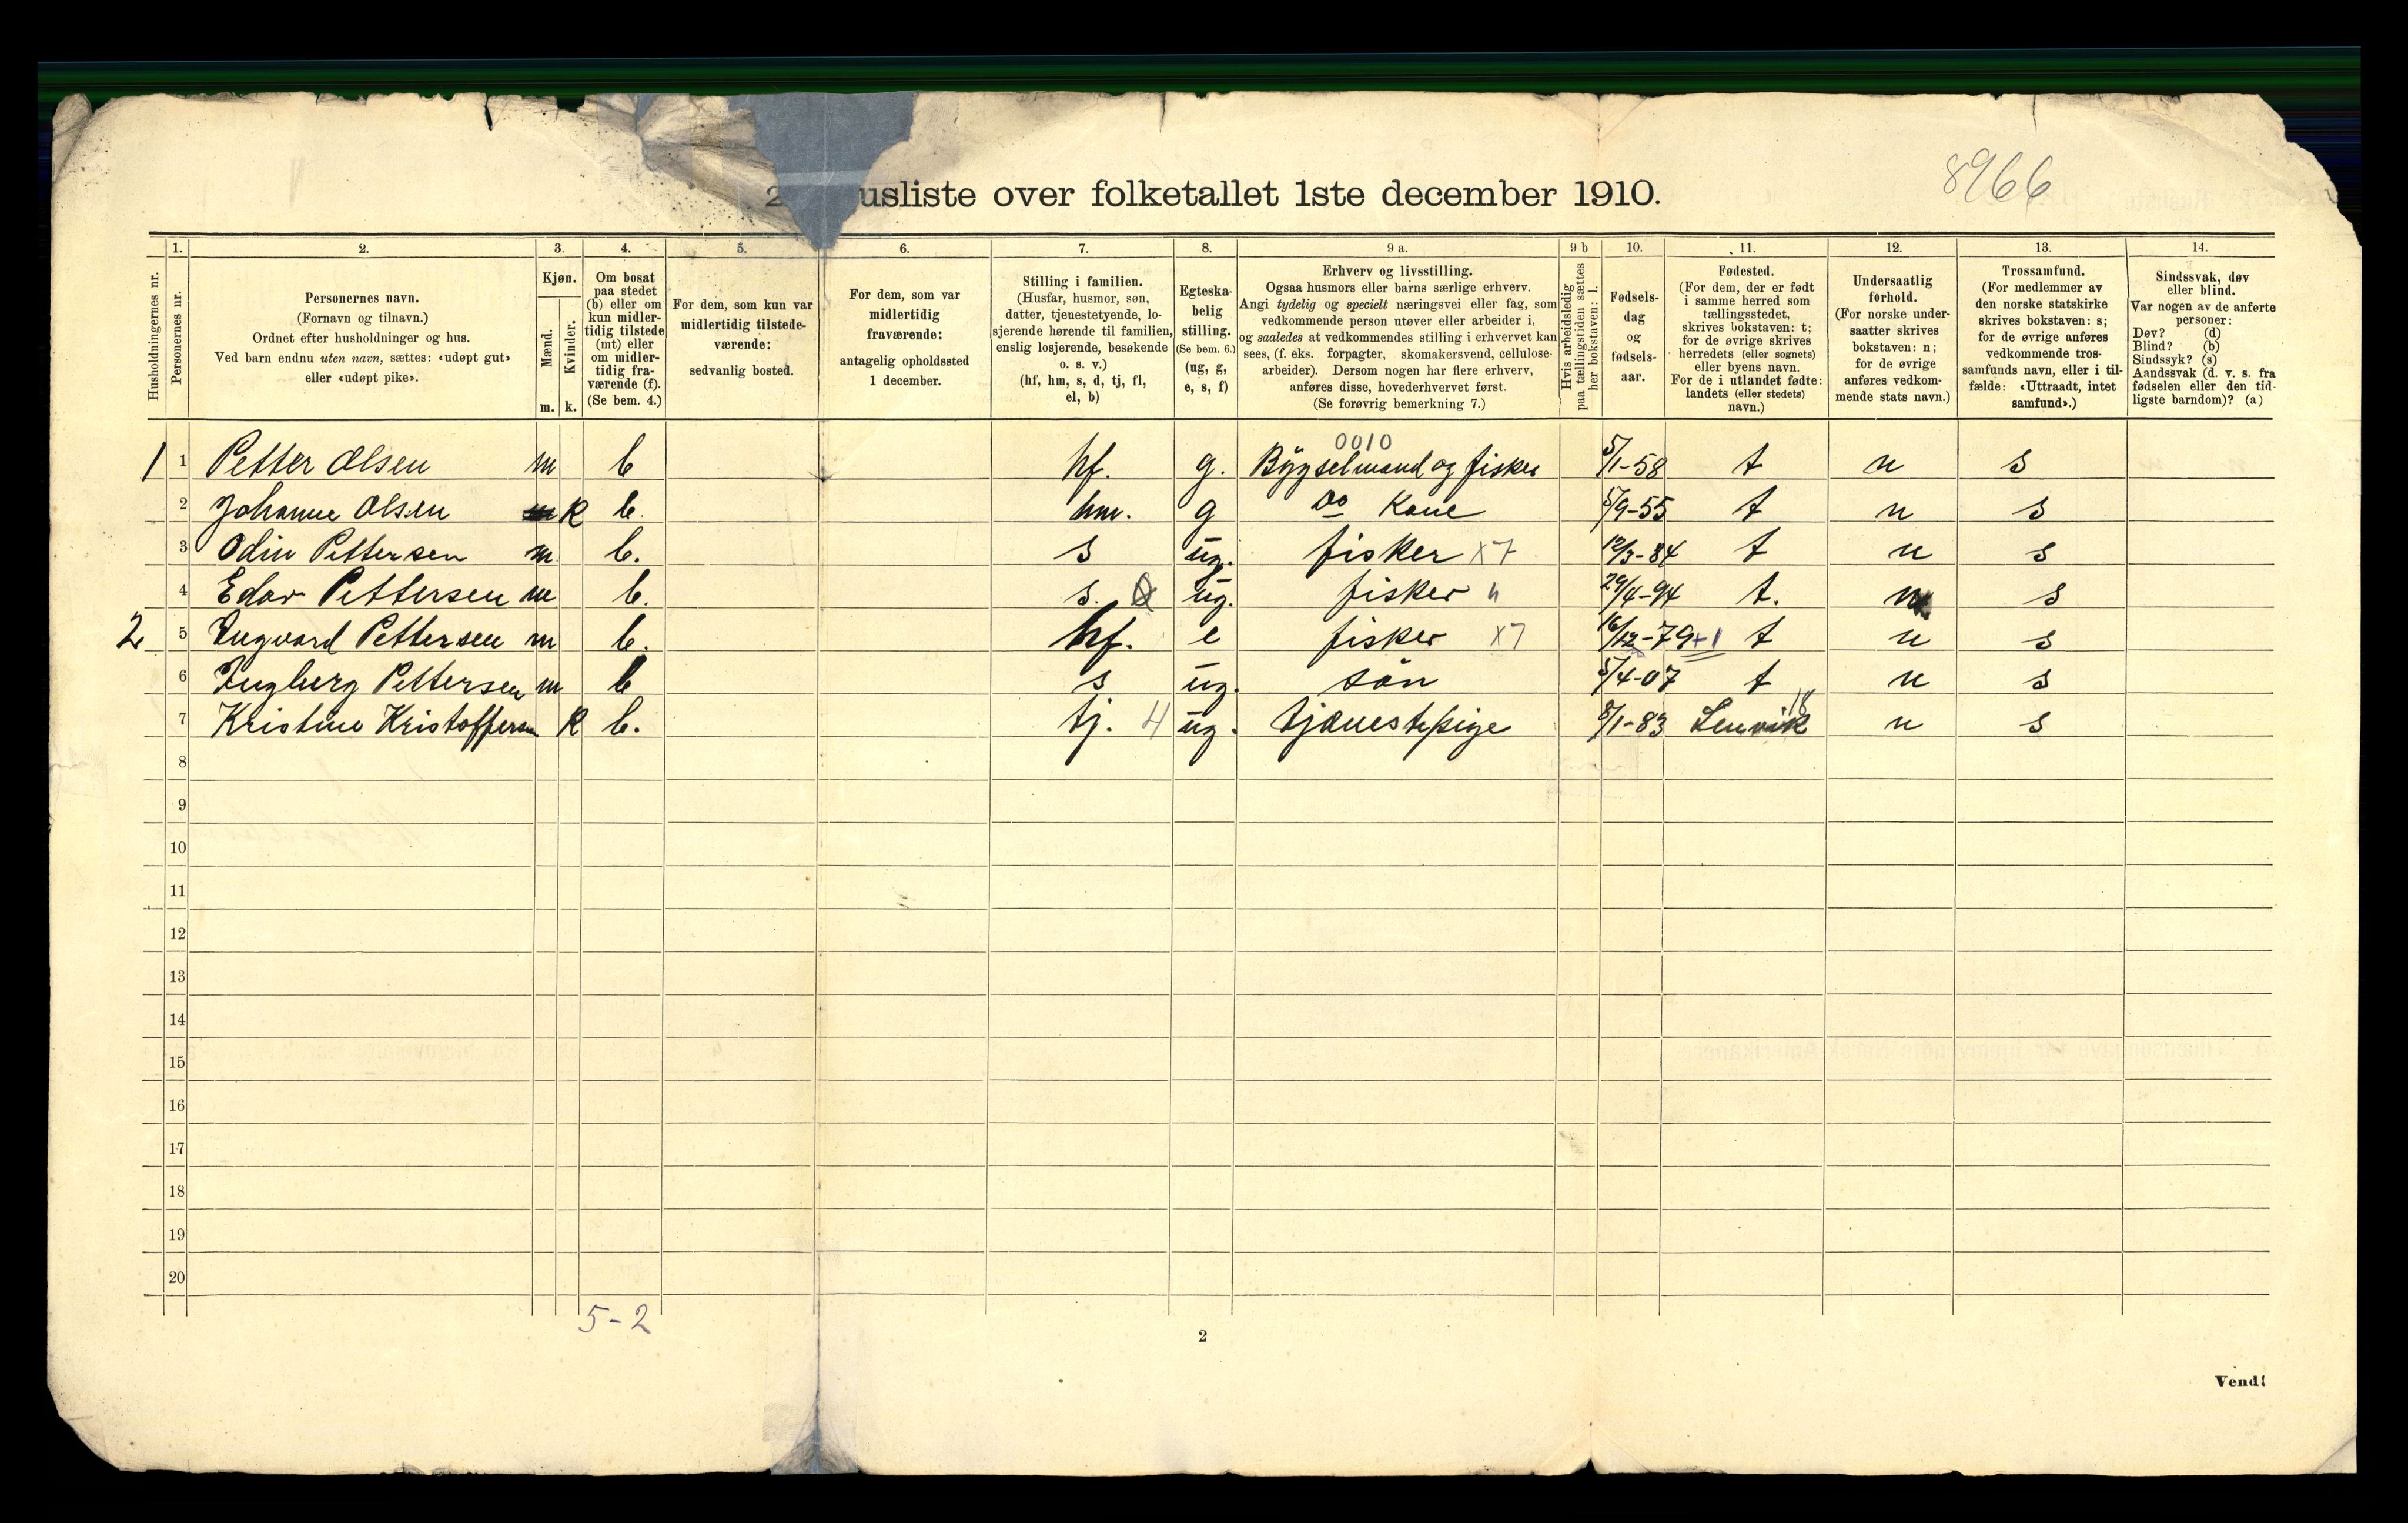 8966
2. Husliste over folketallet 1ste december 1910.
1. 2. 3. 4. 5. 6. 7. 8. 9 a. 9 b 10. 11. 12. 13. 14.
Husholdningernes nr.
Personernes nr.
Personernes navn.
(Fornavn og tilnavn.)
Ordnet efter husholdninger og hus.
Ved barn endnu uten navn, sættes: «udøpt gut»
eller «udøpt pike».
Kjøn.
Mænd.
Kvinder.
m. k.
Om bosat
paa stedet
(b) eller om
kun midler-
tidig tilstede
(mt) eller
om midler-
tidig fra-
værende (f).
(Se bem. 4.)
For dem, som kun var
midlertidig tilstede-
værende:
sedvanlig bosted.
For dem, som var
midlertidig
fraværende:
antagelig opholdssted
1 december.
Stilling i familien.
(Husfar, husmor, søn,
datter, tjenestetyende, lo-
sjerende hørende til familien,
enslig losjerende, besøkende
o. s. v.)
(hf, hm, s, d, tj, fl,
el, b)
Egteska-
belig
stilling.
(Se bem. 6.)
(ug, g,
e, s, f)
Erhverv og livsstilling.
Ogsaa husmors eller barns særlige erhverv.
Angi tydelig og specielt næringsvei eller fag, som
vedkommende person utøver eller arbeider i,
og saaledes at vedkommendes stilling i erhvervet kan
sees, (f. eks. forpagter, skomakersvend, cellulose-
arbeider). Dersom nogen har flere erhverv,
anføres disse, hovederhvervet først.
(Se forøvrig bemerkning 7.)
Hvis arbeidsledig
paa tællingstiden sættes
her bokstaven: l.
Fødsels-
dag
og
fødsels-
aar.
Fødested.
(For dem, der er født
i samme herred som
tællingsstedet,
skrives bokstaven: t;
for de øvrige skrives
herredets (eller sognets)
eller byens navn.
For de i utlandet fødte:
landets (eller stedets)
navn.)
Undersaatlig
forhold.
(For norske under-
saatter skrives
bokstaven: n;
for de øvrige
anføres vedkom-
mende stats navn.)
Trossamfund.
(For medlemmer av
den norske statskirke
skrives bokstaven: s;
for de øvrige anføres
vedkommende tros-
samfunds navn, eller i til-
fælde: «Uttraadt, intet
samfund».)
Sindssvak, døv
eller blind.
Var nogen av de anførte
personer:
Døv? (d)
Blind? (b)
Sindssyk? (s)
Aandssvak (d. v. s. fra
fødselen eller den tid-
ligste barndom)? (a)
0010
1 1 Petter Olsen m b hf. g. Bygselmand og fisker 5/1-58 t n s
2 Johanne Olsen k b. hm. g Do Kone 5/9-55 t n s
3 Odin Pettersen m b. s ug. fisker X7 12/3-84 t n s
4 Edor Pettersen m b. s. ug. fisker h 29/4-94 t. n s
2 5 Ingvard Pettersen m b. hf. e fisker X7 16/12-79+1 t n s
6 Ingberg Pettersen m b s ug. søn 5/4-07 t n s
18
7 Kristine Kristoffersen k b. tj. 4 ug. tjenestepige 8/1-83 Lenvik n s
8
9
10
11
12
13
14
15
16
17
18
19
20
5-2
2
Vend!